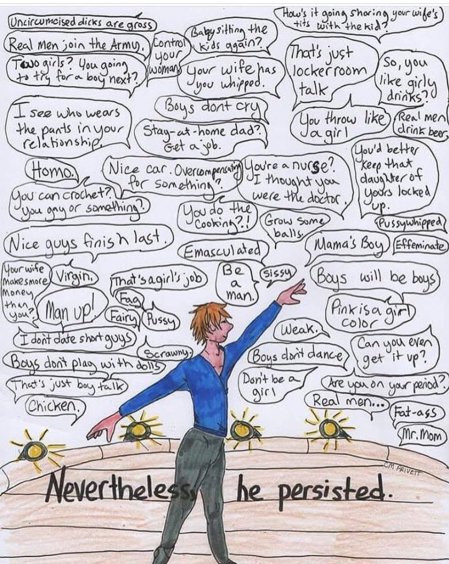 Uncircumcised dicks are gross
Real men join the Army.
Two girls? You going
to try for a boy next?
Control
your
woman.
Babysitting the
kids again?
How's it going sharing your wife's
tits with the kid?
Your wife has
you whipped.
That's just
locker room
talk
So, you
like girly
drinks?
I see who wears
the pants in your
relationship.
Boys don't cry
Stay-at-home dad?
Get a job.
You throw like
a girl
Real men
drink beer
Homo.
Nice car. Overcompensating
for something?
You're a nurse?
I thought you
were the doctor.
You'd better
keep that
daughter of
yours locked
up.
You can crochet?
You gay or something?
You do the
cooking?!
Grow some
balls.
Pussywhipped
Nice guys finish last.
Emasculated
Mama's Boy
Effeminate
Your wife
makes more
money
than
you?
Virgin.
That's a girl's job
Be
a
man.
sissy
Boys will be boys
Man up!
Fag
Fairy
Pussy
Pink is a girl
color
I don't date short guys
Scrawny
Weak.
Can you even
get it up?
Boys don't play with dolls
Boys don't dance
That's just boy talk
Don't be a
girl
Are you on your period?
Chicken.
Real men...
Fat-ass
Mr. Mom
CM PRIVETT
Nevertheless, he persisted.